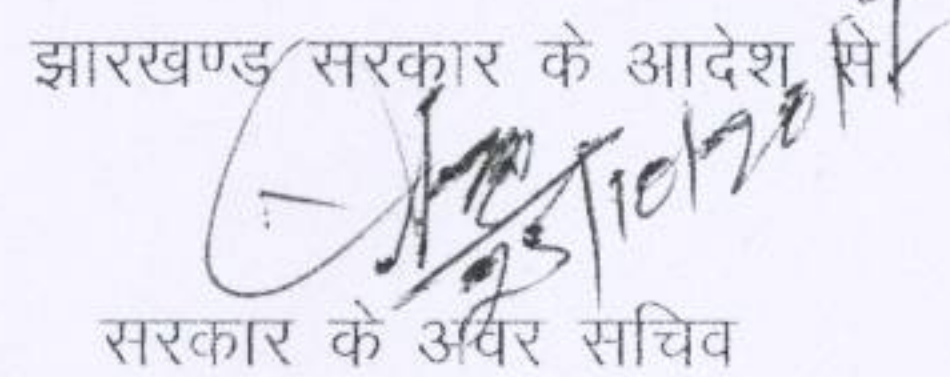 झारखण्ड सरकार के आदेश से
सरकार के अवर सचिव